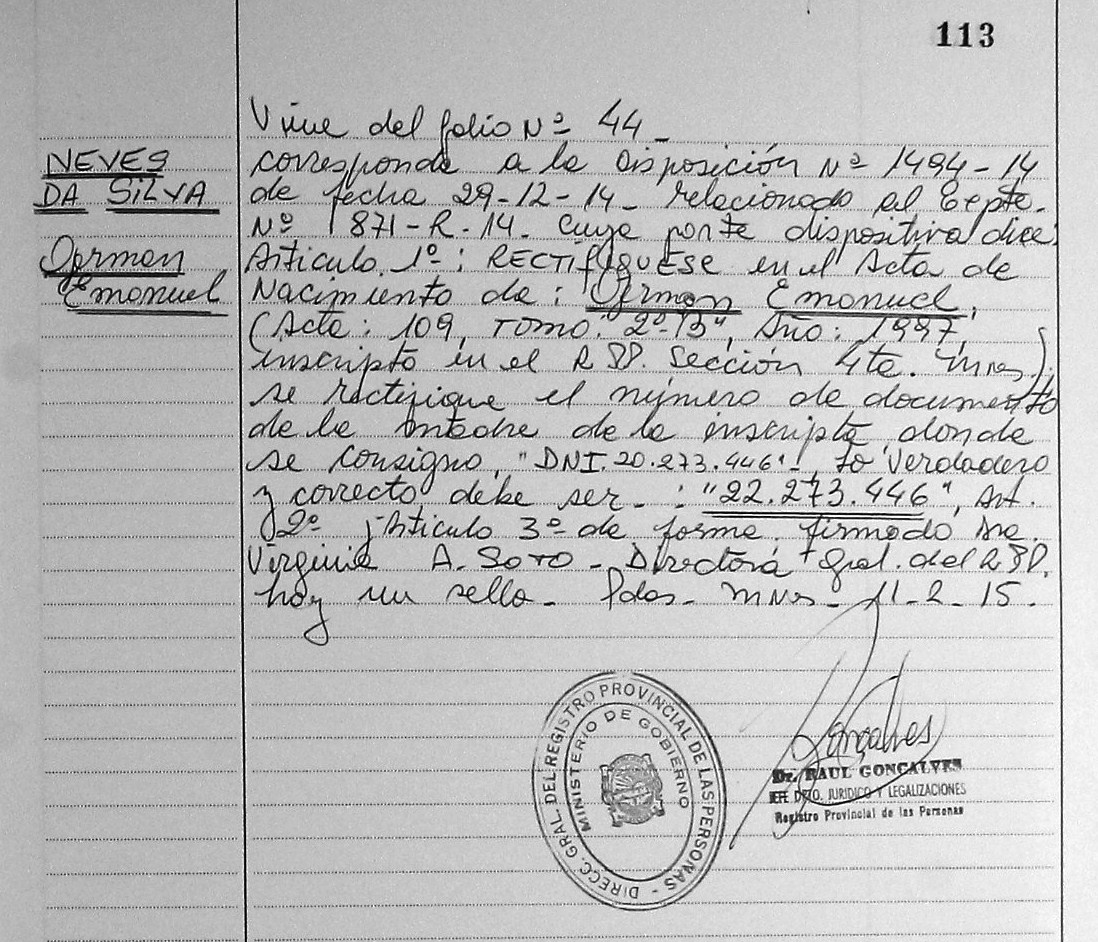 113
Viene del folio Nº 44_
NEVES
DA SILVA
German
Emanuel
corresponde a la Disposición Nº 1494-14
de fecha 29-12-14_ relacionado al Expte.
Nº 1871-R-14. Cuya parte dispositiva dice:
Artículo. 1º: RECTIFIQUESE en el Acta de
Nacimiento de: German Emanuel,
(Acta: 109, Tomo: 2º-B", Año: 1997,
inscripto en el R.P.P. Sección 4ta. Mnes.)
se rectifique el número de documento
de la madre de la inscripta, donde
se consigno, "DNI. 20.273.446"-, Lo Verdadero
y correcto debe ser_: "22.273.446", Art.
2º y Artículo 3º de forma. firmado Dra.
Virginia A. SOTO - Directora Gral. del R.P.P.
hay un sello_ Pdas_ Mnes_ 11-2-15.
DIRECC. GRAL. DEL REGISTRO PROVINCIAL DE LAS PERSONAS -
MINISTERIO DE GOBIERNO
Gonçalves
Dr. RAUL GONCALVES
JEFE DPTO. JURIDICO Y LEGALIZACIONES
Registro Provincial de las Personas